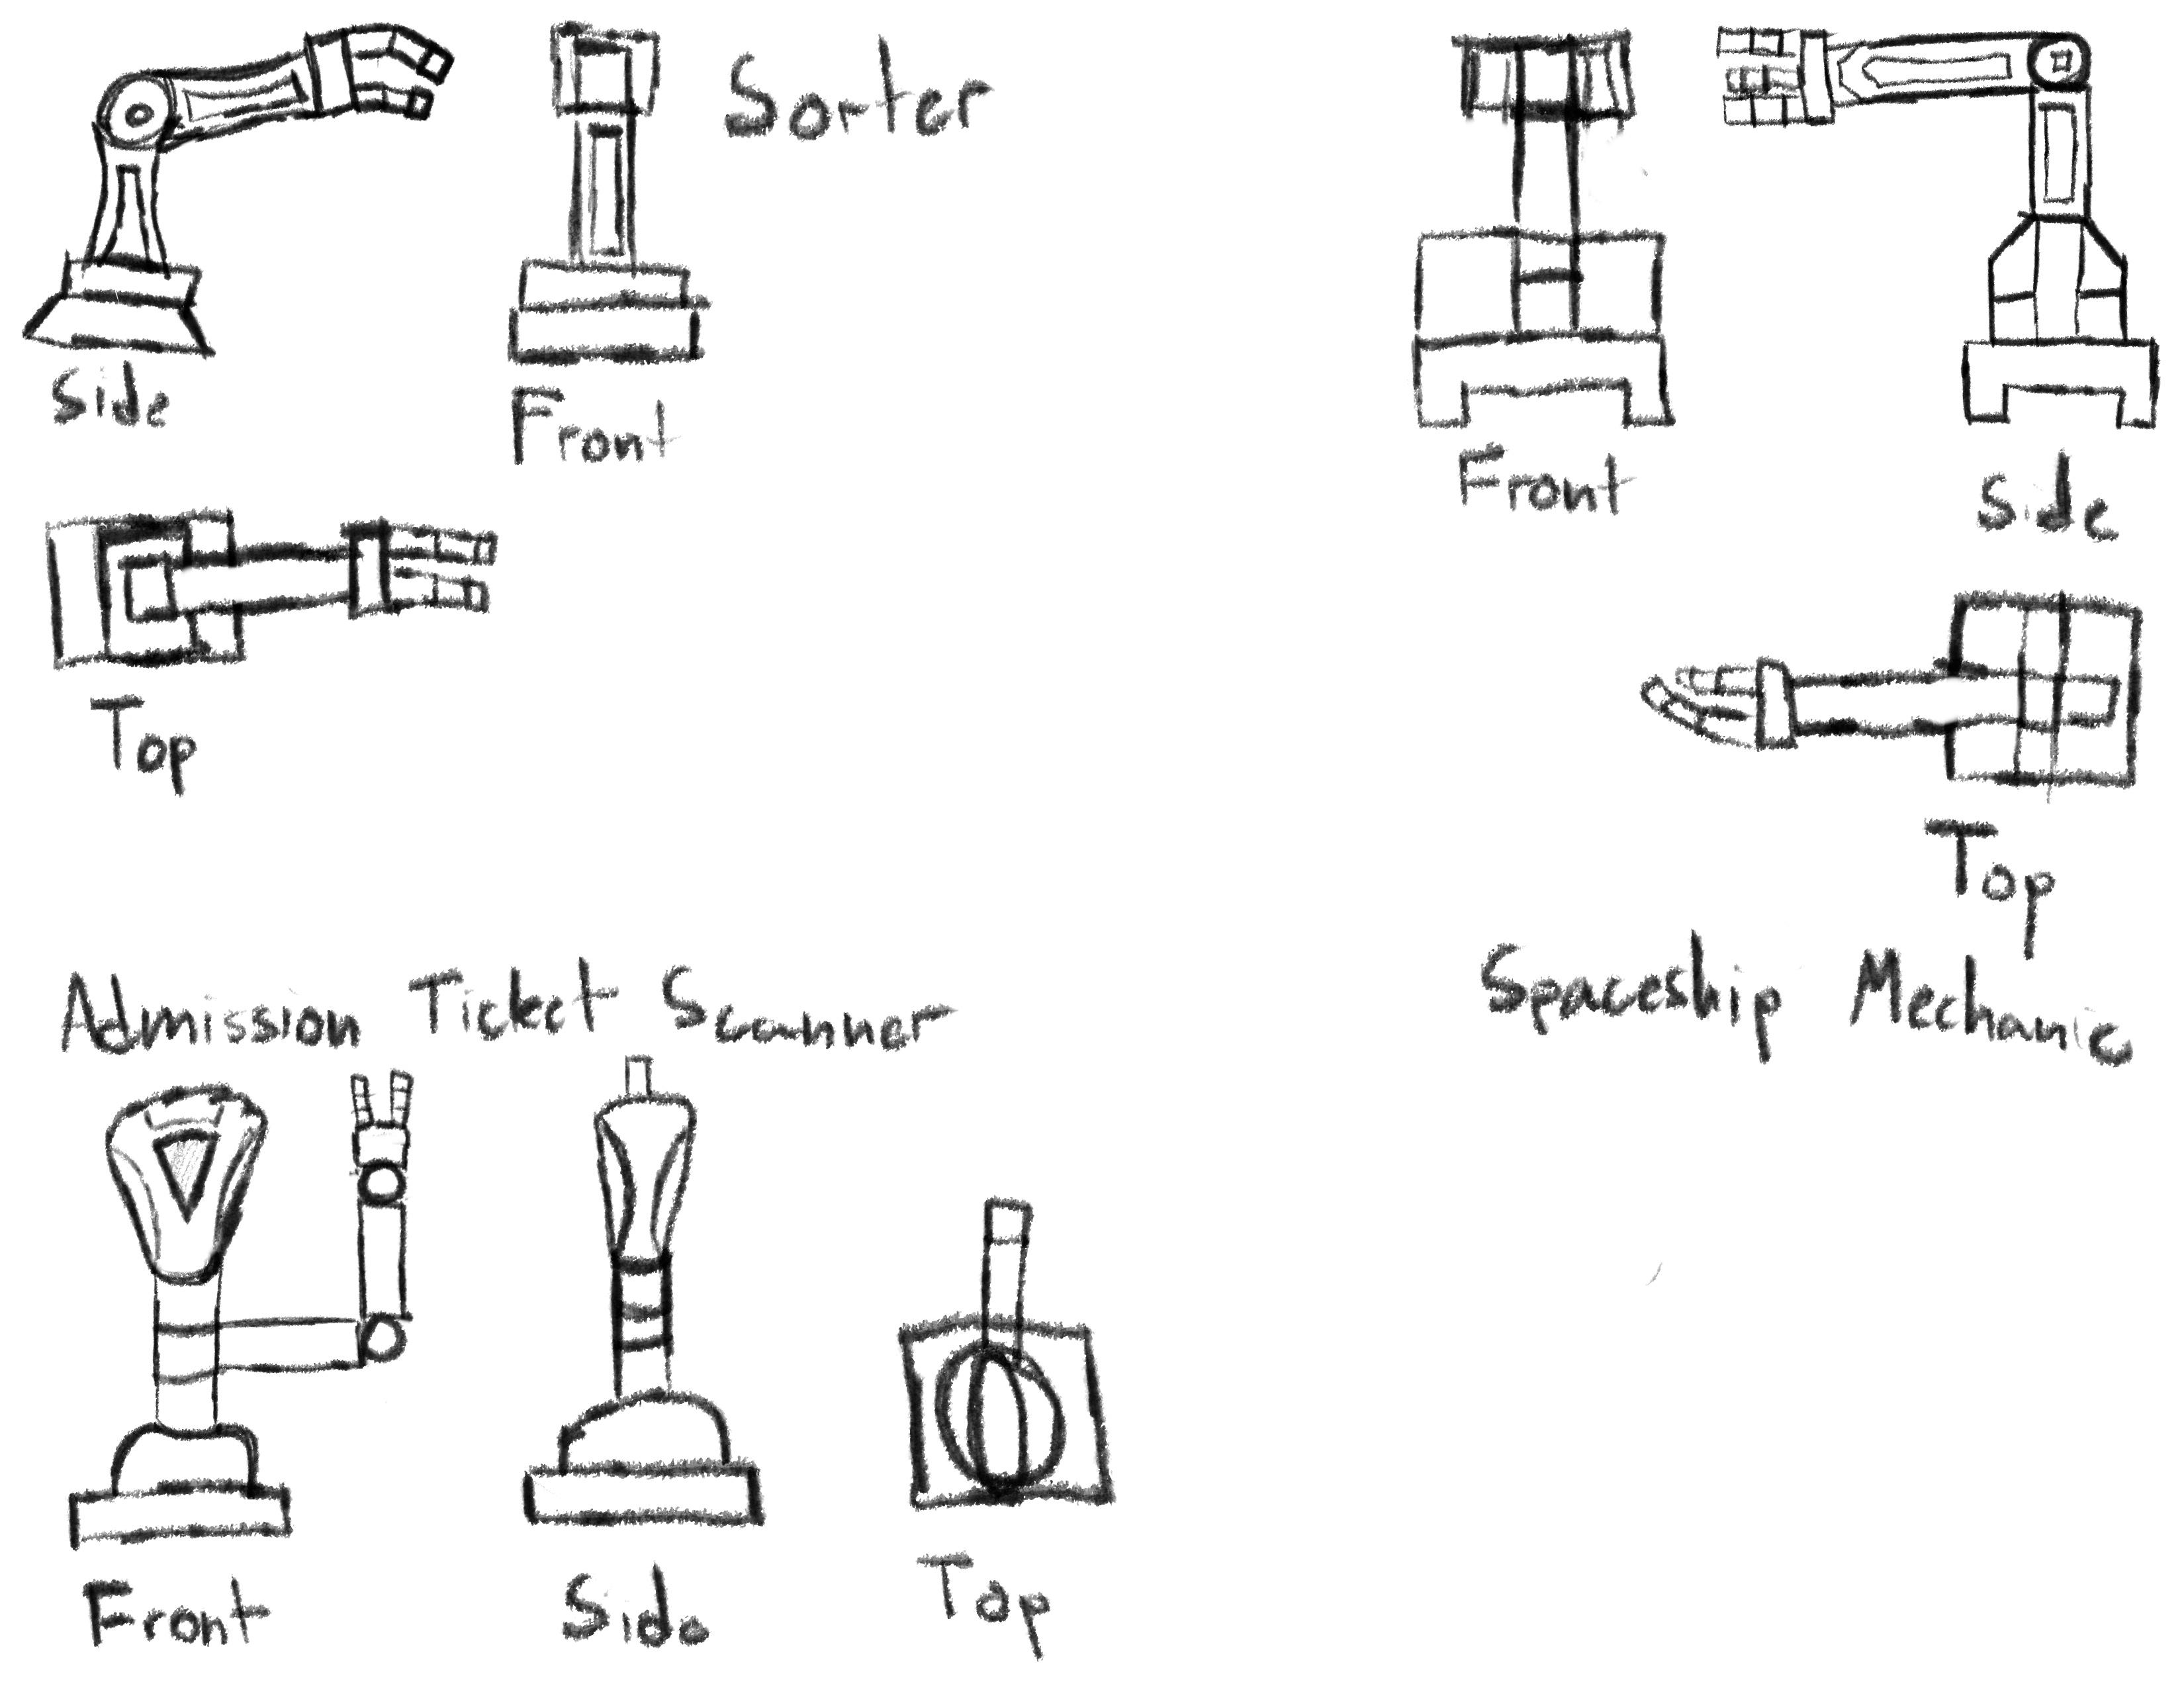 Sorter
Side
Front
Top
Front
Side
Top
Spaceship Mechanic
Admission Ticket Scanner
Front
Side
Top